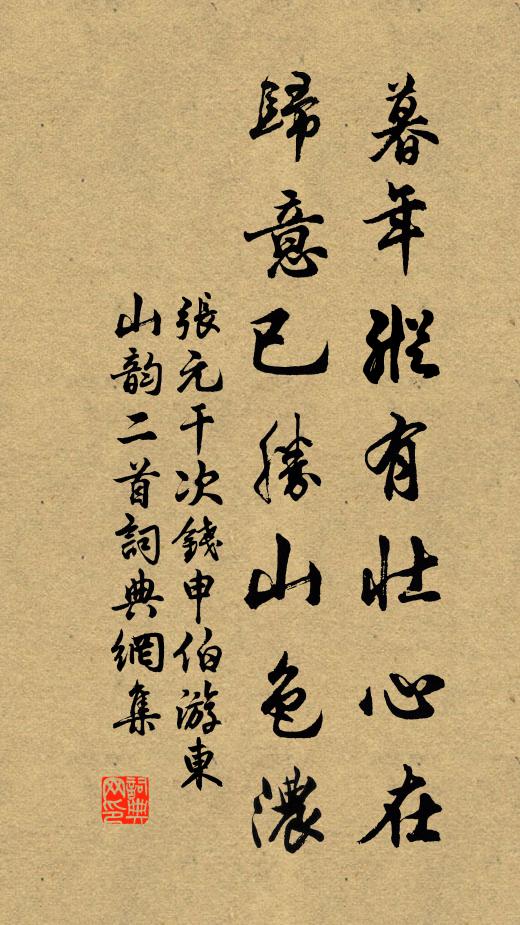 暮年縱有壯心在
歸意已勝山色濃
張元干次錢申伯游東
山韵二首詞典網集
詞典
网印